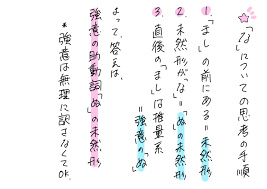 「な」についての思考の手順
1.「まし」の前にある=未然形
2.未然形が「な」=「ぬ」の未然形
3.直後の「まし」は推量系
=強意の「ぬ」
よって、答えは、
強意の助動詞「ぬ」の未然形
*強意は無理に訳さなくてOK.